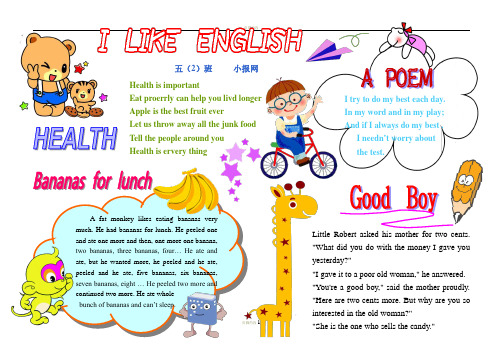 I LIKE ENGLISH
五（2）班 小报网
HEALTH
Health is important
Eat proerrly can help you livd longer
Apple is the best fruit ever
Let us throw away all the junk food
Tell the people around you
Health is ervery thing
A POEM
I try to do my best each day.
In my word and in my play;
And if I always do my best,
I needn't worry about
the test.
Bananas for lunch
A fat monkey likes eating bananas very
much. He had bananas for lunch. He peeled one
and ate one more and then, one more one banana,
two bananas, three bananas, four… He ate and
ate, but he wanted more, he peeled and he ate,
peeled and he ate, five bananas, six bananas,
seven bananas, eight … He peeled two more and
continued two more. He ate whole
bunch of bananas and can't sleep.
Good Boy
Little Robert asked his mother for two cents.
"What did you do with the money I gave you
yesterday?"
"I gave it to a poor old woman," he answered.
"You're a good boy," said the mother proudly.
"Here are two cents more. But why are you so
interested in the old woman?"
"She is the one who sells the candy."